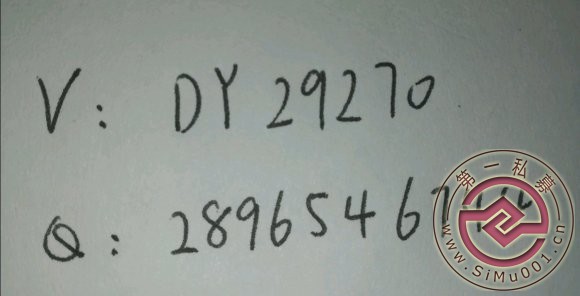 V: DY 29270
Q: 28965467
第一私募
www.SiMu001.cn